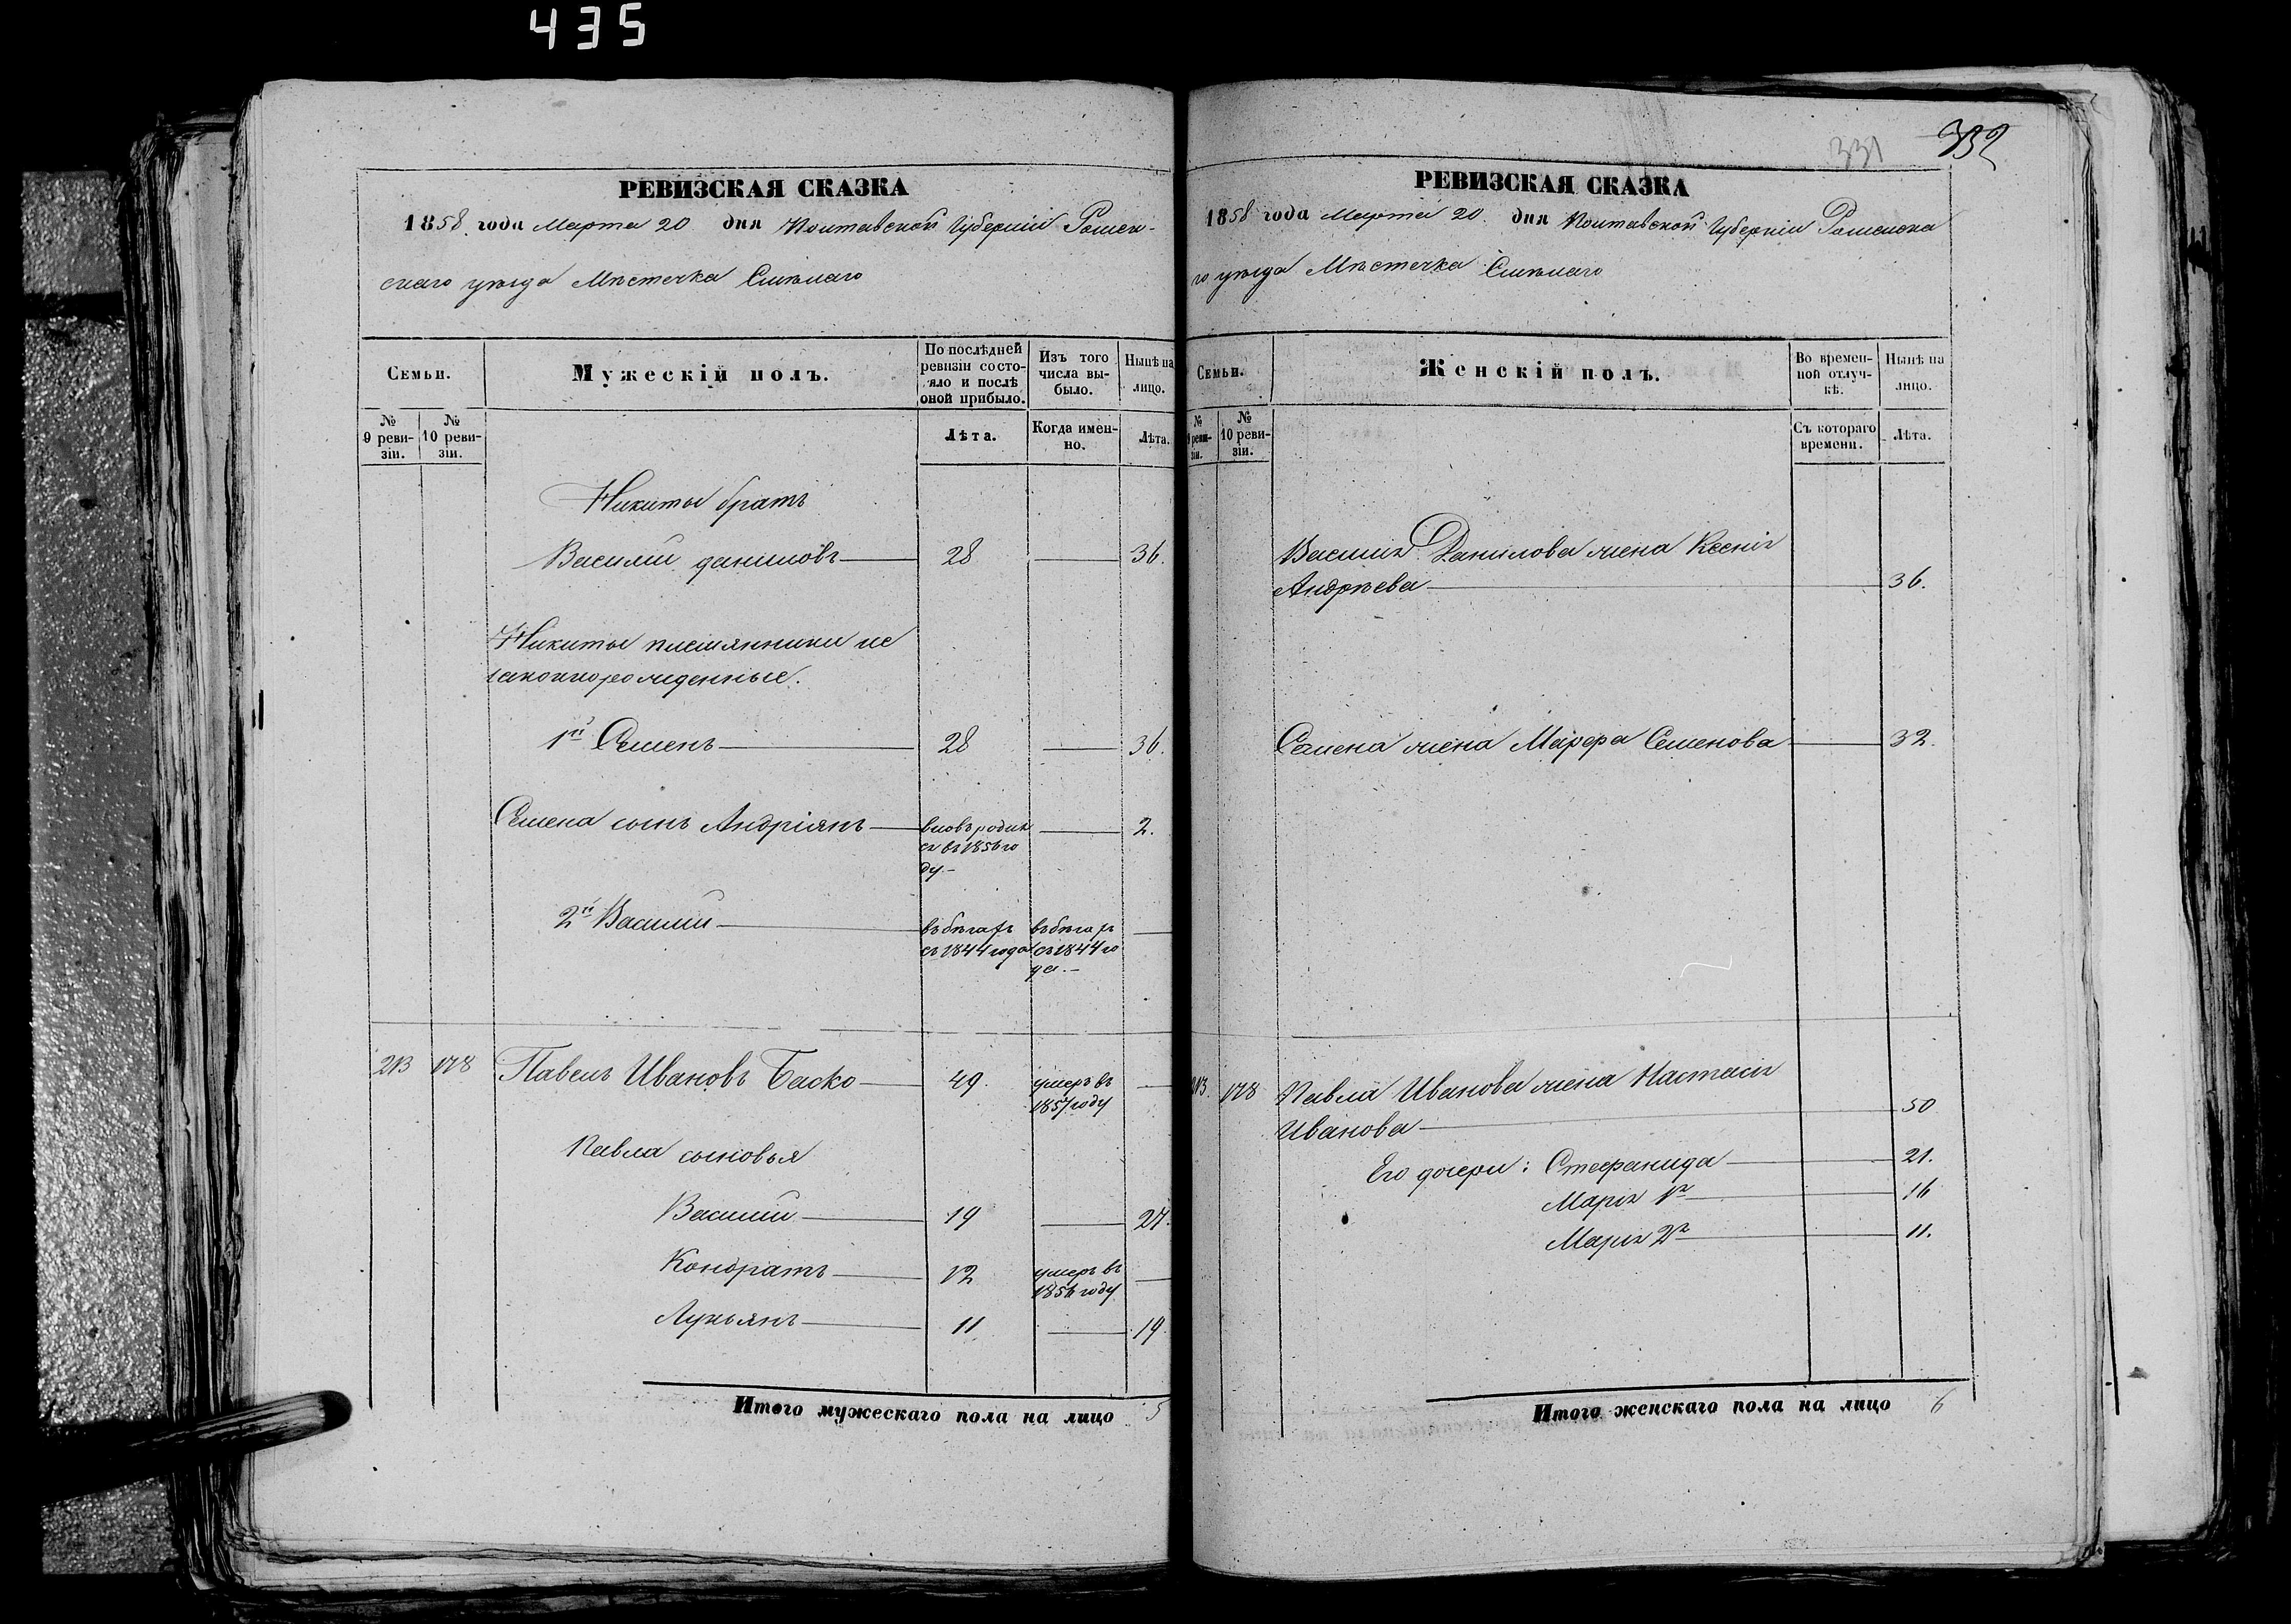 435
РЕВИЗСКАЯ СКАЗКА
1858 года Марта 20 дня Полтавской Губерніи Ромен-
скаго уѣзда Мѣстечка Смѣлаго
Семьи.
Мужескій полъ.
По послѣдней ревизіи состояло и послѣ оной прибыло.
Изъ того числа выбыло.
Нынѣ на лицо.
№ 9 ревизіи.
№ 10 ревизіи.
Лѣта.
Когда именно.
Лѣта.
Никиты братъ
Василий даниловъ 28 36.
Никиты племянники не
законнорожденные.
1й Семенъ 28 36.
Семена сынъ Андріянъ вновь родил 2.
ся въ 1856 го
ду.
2й Василий въ бѣгахъ въ бѣгахъ
съ 1844 года съ 1844 го
да.
213 178 Павелъ Ивановъ Баско 49. умеръ въ
1857 году
Павла сыновья
Василий 19 27.
Кондратъ 12 умеръ въ
году
Лукьянъ 11 19.
Итого мужескаго пола на лицо 5
331 332
РЕВИЗСКАЯ СКАЗКА
1858 года Марта 20. дня Полтавской Губерніи Роменска
го уѣзда Мѣстечка Смѣлаго
Семьи.
Женскій полъ.
Во временной отлучкѣ.
Нынѣ на лицо.
№ 9 ревизіи.
№ 10 ревизіи.
Съ котораго времени.
Лѣта.
Василия Данилова жена Ксения
Андрѣева 36.
Семена жена Марфа Семенова 32.
213. 178 Павла Иванова жена Настасия
Иванова 50
Его дочери: Стефанида 21.
Мария 1я 16
Мария 2я 11.
Итого женскаго пола на лицо 6